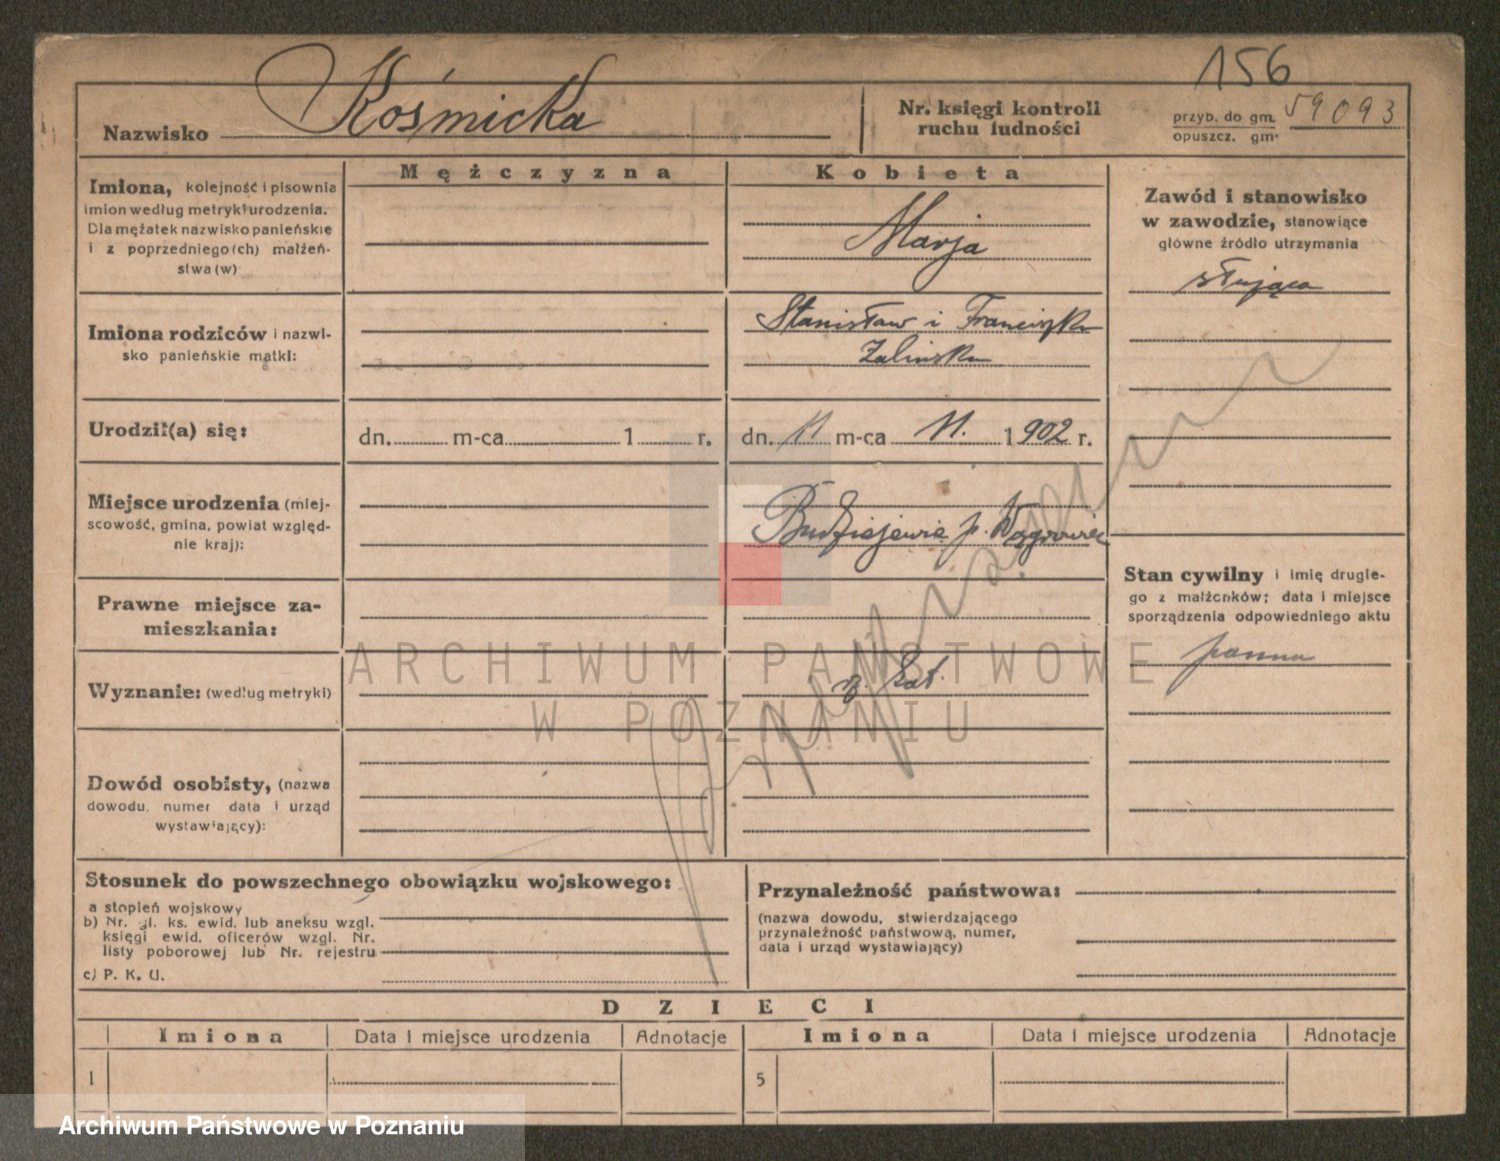 156
Nazwisko Kośmicka
Nr. księgi kontroli
ruchu ludności
przyb. do gm. 59093
opuszcz. gm.
Mężczyzna
Kobieta
Imiona, kolejność i pisownia
imion według metryki urodzenia.
Dla mężatek nazwisko panieńskie
i z poprzedniego(ch) małżeń-
stwa(w)
Marja
Zawód i stanowisko
w zawodzie, stanowiące
główne źródło utrzymania
służąca
Imiona rodziców i nazwi-
sko panieńskie matki:
Stanisław i Franciszka
Zalińska
Urodził(a) się:
dn. m-ca 1 r.
dn. 11 m-ca 11. 1902 r.
Miejsce urodzenia (miej-
scowość, gmina, powiat względ-
nie kraj):
Budziejewie p. Wągrowiec
Stan cywilny i imię drugie-
go z małżonków; data i miejsce
sporządzenia odpowiedniego aktu
panna
Prawne miejsce za-
mieszkania:
ARCHIWUM PAŃSTWOWE
W POZNANIU
Wyznanie: (według metryki)
rz. kat.
Dowód osobisty, (nazwa
dowodu, numer data i urząd
wystawiający):
Stosunek do powszechnego obowiązku wojskowego:
a stopień wojskowy
b) Nr. gl. ks. ewid. lub aneksu wzgl.
księgi ewid. oficerów wzgl. Nr.
listy poborowej lub Nr. rejestru
c) P. K. U.
Przynależność państwowa:
(nazwa dowodu, stwierdzającego
przynależność państwową, numer,
data i urząd wystawiający)
DZIECI
Imiona Data i miejsce urodzenia Adnotacje Imiona Data i miejsce urodzenia Adnotacje
1 5
Archiwum Państwowe w Poznaniu